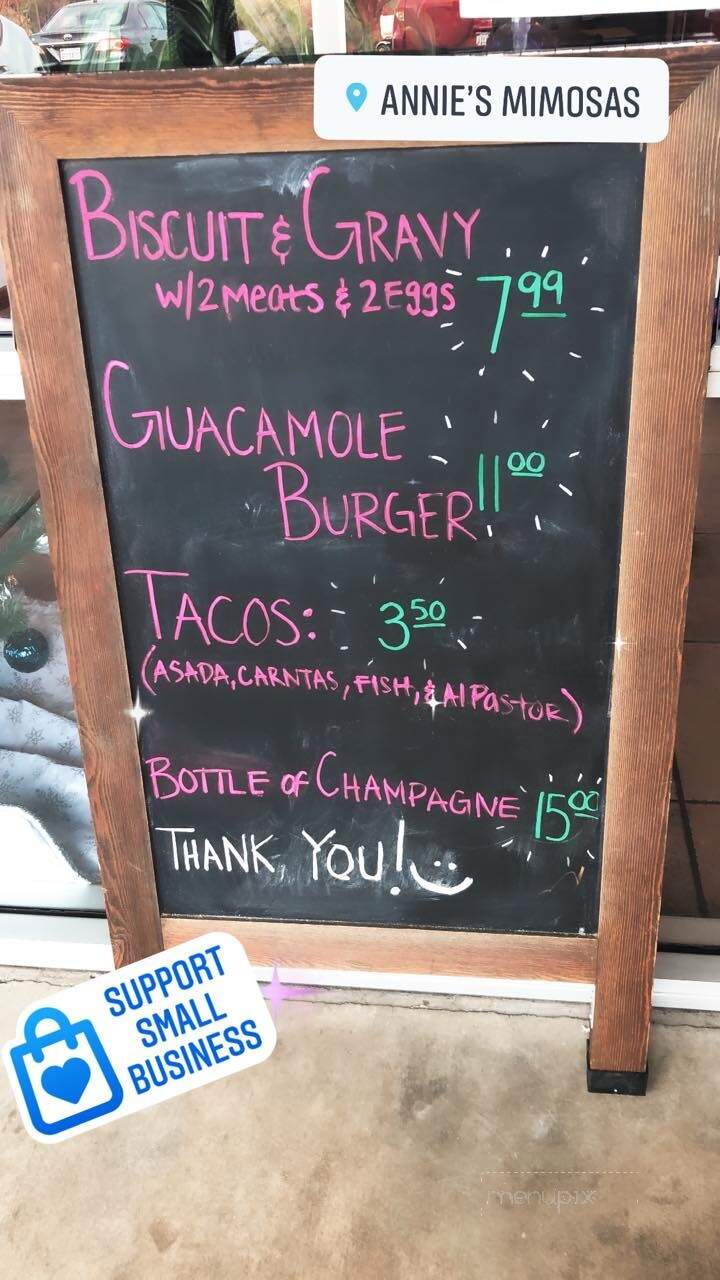 ANNIE'S MIMOSAS
BISCUIT & GRAVY
W/2 Meats & 2 Eggs 7.99
GUACAMOLE
BURGER 11.00
TACOS: 3.50
(ASADA, CARNTAS, FISH, & Al PastoR)
BOTTLE OF CHAMPAGNE 15.00
THANK YOU!
SUPPORT
SMALL
BUSINESS
menupix